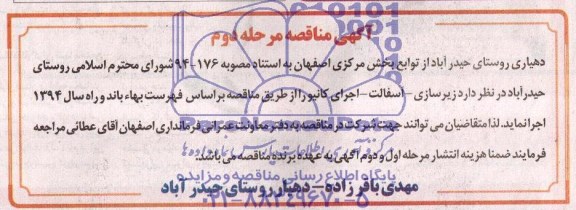 آگهی مناقصه مرحله دوم
دهیاری روستای حیدرآباد از توابع بخش مرکزی اصفهان به استناد مصوبه ۱۷۶-۹۴ شورای محترم اسلامی روستای
حیدرآباد در نظر دارد زیرسازی - آسفالت - اجرای کانیو را از طریق مناقصه براساس فهرست بهاء باند و راه سال ۱۳۹۴
اجرا نماید. لذا متقاضیان می توانند جهت شرکت در مناقصه به دفتر معاونت عمرانی فرمانداری اصفهان آقای عطائی مراجعه
فرمایند ضمنا هزینه انتشار مرحله اول و دوم آگهی به عهده برنده مناقصه می باشد.
پایگاه اطلاع رسانی مناقصه و مزایده
مهدی باقرزاده - دهیار روستای حیدرآباد
۰۲۱-۸۸۳۴۹۶۷۰-۵